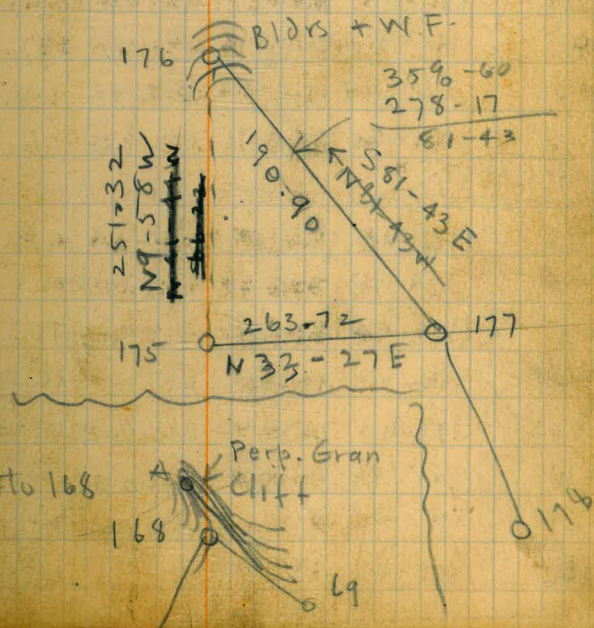 176
Bldrs + W.F.
359-60
278-17
81-43
190.90
S 81-43 E
N 81-43 W
251.32
N9-58W
175
263.72
N 33-27E
177
Perp. Gran
Cliff
A
to 168
168
69
178